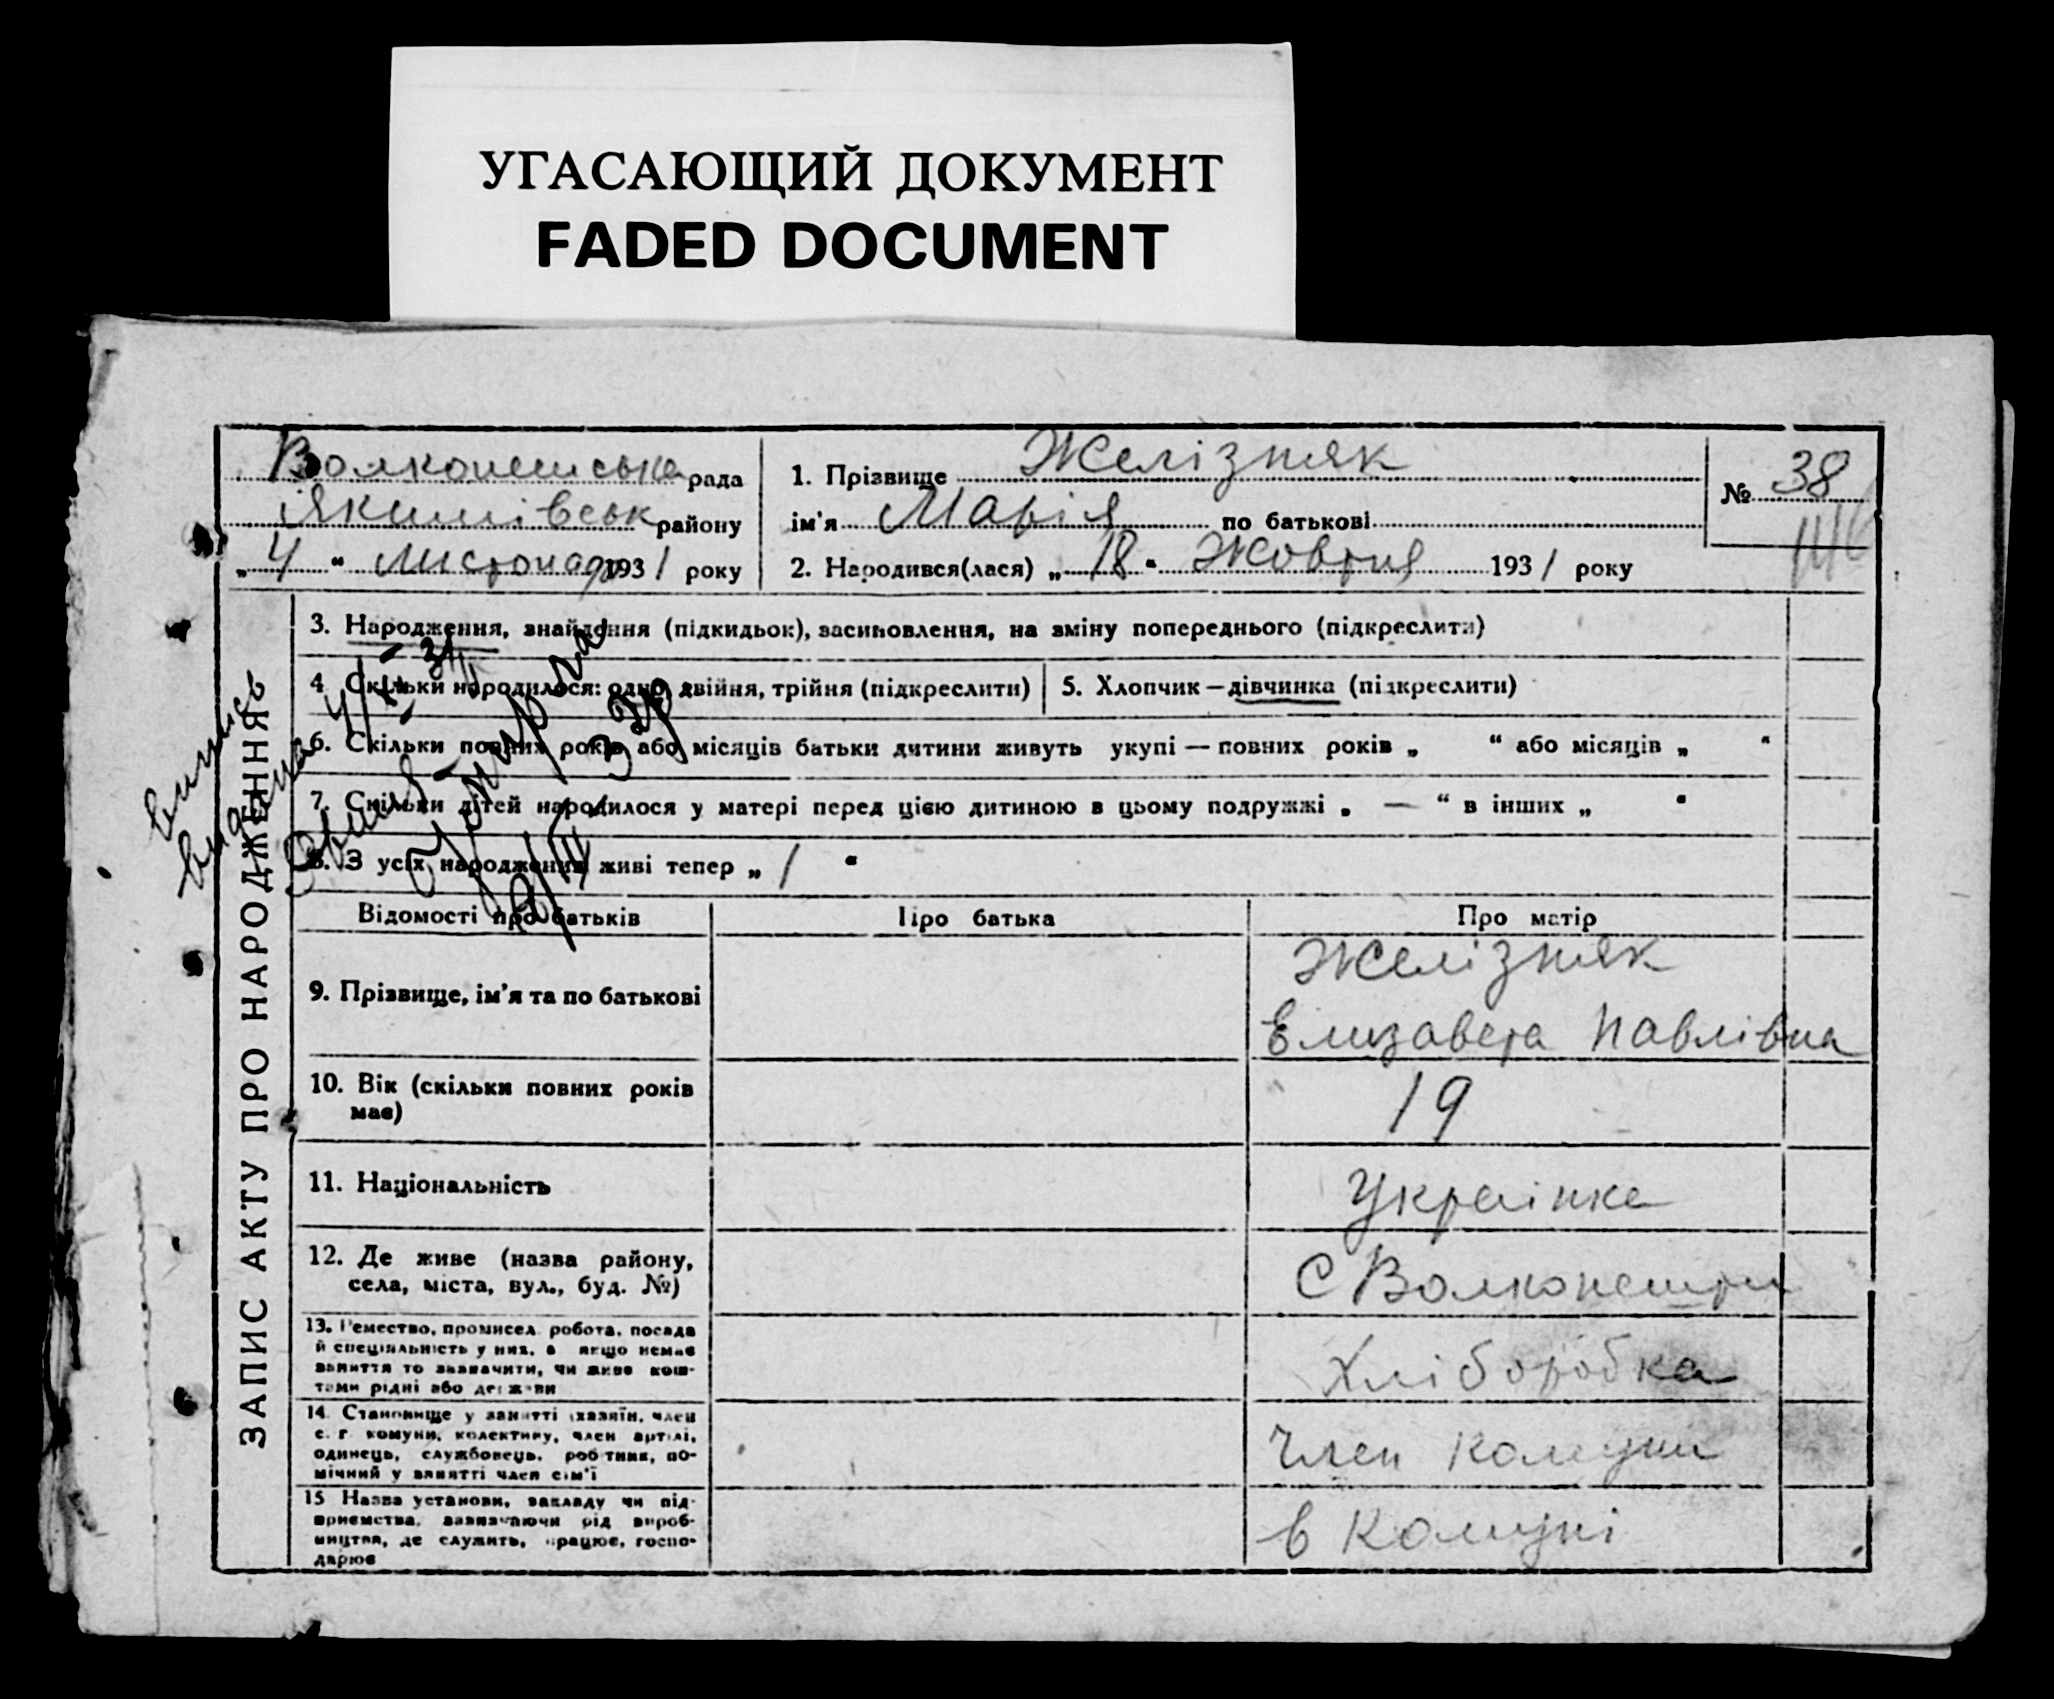 УГАСАЮЩИЙ ДОКУМЕНТ
FADED DOCUMENT
Волконешська рада
Якимівськ району
„ 4 “ Листопада 1931 року
1. Прізвище Желізняк
ім'я Марія по батькові
2. Народився(лася) „ 18 “ Жовтня 1931 року
№ 38
ЗАПИС АКТУ ПРО НАРОДЖЕННЯ
3. Народження, знайдення (підкидьок), засиновлення, на зміну попереднього (підкреслити)
4 Скільки народилося: одно, двійня, трійня (підкреслити)
5. Хлопчик — дівчинка (підкреслити)
6. Скільки повних років або місяців батьки дитини живуть укупі — повних років „ “ або місяців „ “
7. Скільки дітей народилося у матері перед цією дитиною в цьому подружжі „ — “ в інших „ “
8. З усіх народжених живі тепер „ 1 “
випись
видана
4/XI – 31
Відомості про батьків
Про батька
Про матір
9. Прізвище, ім'я та по батькові
Желізняк
Елизавета Павлівна
10. Вік (скільки повних років
має)
19
11. Національність
Українка
12. Де живе (назва району,
села, міста, вул., буд. №)
С Волконешти
13. Ремество, промисел, робота, посада
й спеціяльність у них, а якщо немає
заняття то зазначити, чи живе кош-
тами рідні або держави
Хліборобка
14. Становище у занятті (хазяїн, член
с. г. комуни, колективу, член артілі,
одинець, службовець, робітник, по-
мічний у занятті член сім'ї
Член комуни
15 Назва установи, закладу чи під-
приємства, зазначаючи рід вироб-
ництва, де служить, працює, госпо-
дарює
в комуні